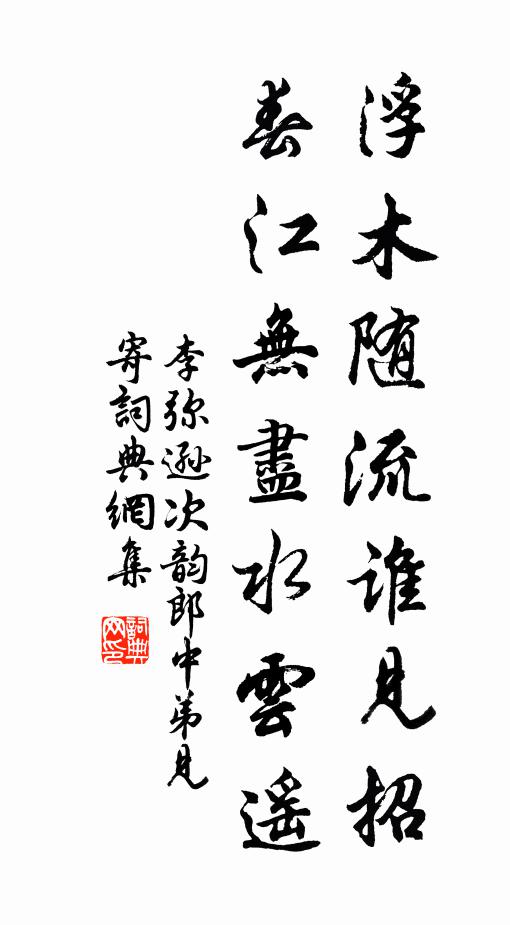 浮木随流谁見招
春江無盡水雲遥
李弥遜次韵郎中弟見
寄詞典網集
詞典网印